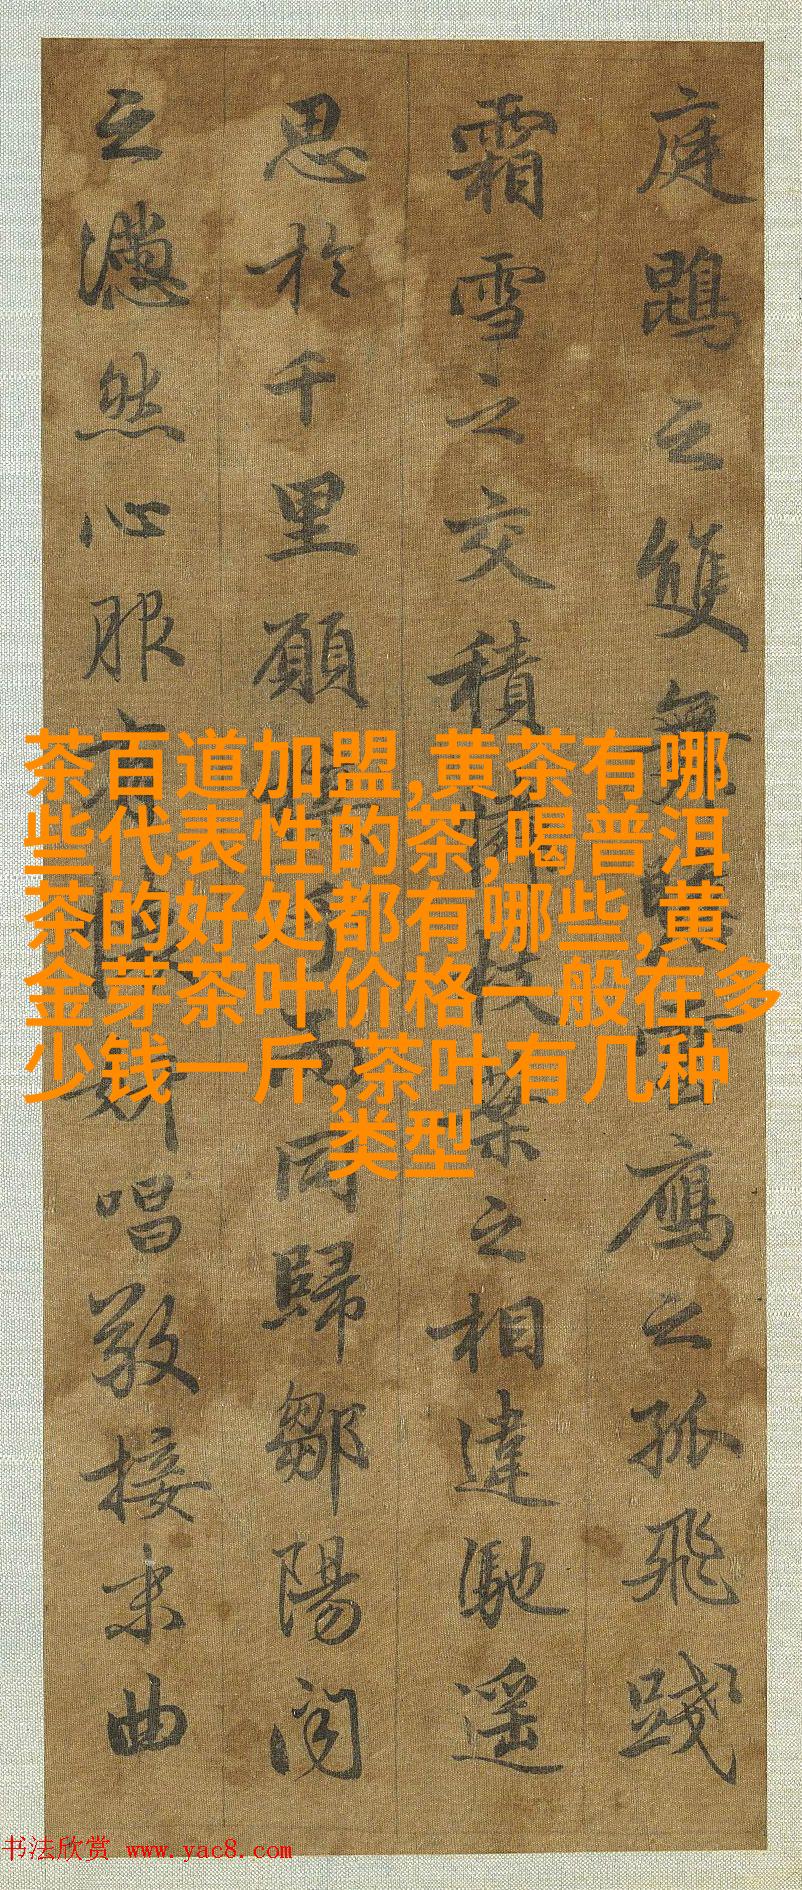 庭鵾之雙舞瞻雲鴈之孤飛踐
霜雪之交積憐枝葉之相違馳遥
思於千里願接手而同歸鄒陽聞
之懣然心服有懷妍唱敬接末曲
茶百道加盟,黄茶有哪
些代表性的茶,喝普洱
茶的好处都有哪些,黄
金芽茶叶价格一般在多
少钱一斤,茶叶有几种
类型
书法欣赏 www.yac8.com